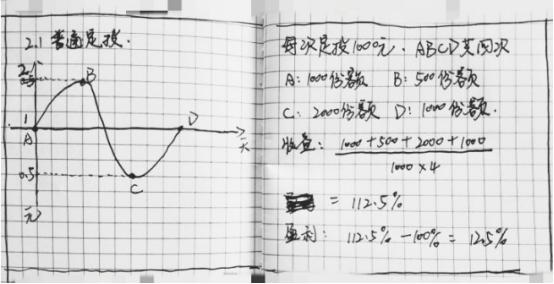 2.1 普通定投.
2
B
1
A
D
天
0.5
C
元
每次定投1000元. ABCD共四次
A: 1000份额 B: 500份额
C: 2000份额 D: 1000份额.
收益: 1000+500+2000+1000
1000×4
= 112.5%
盈利: 112.5% -100% = 12.5%